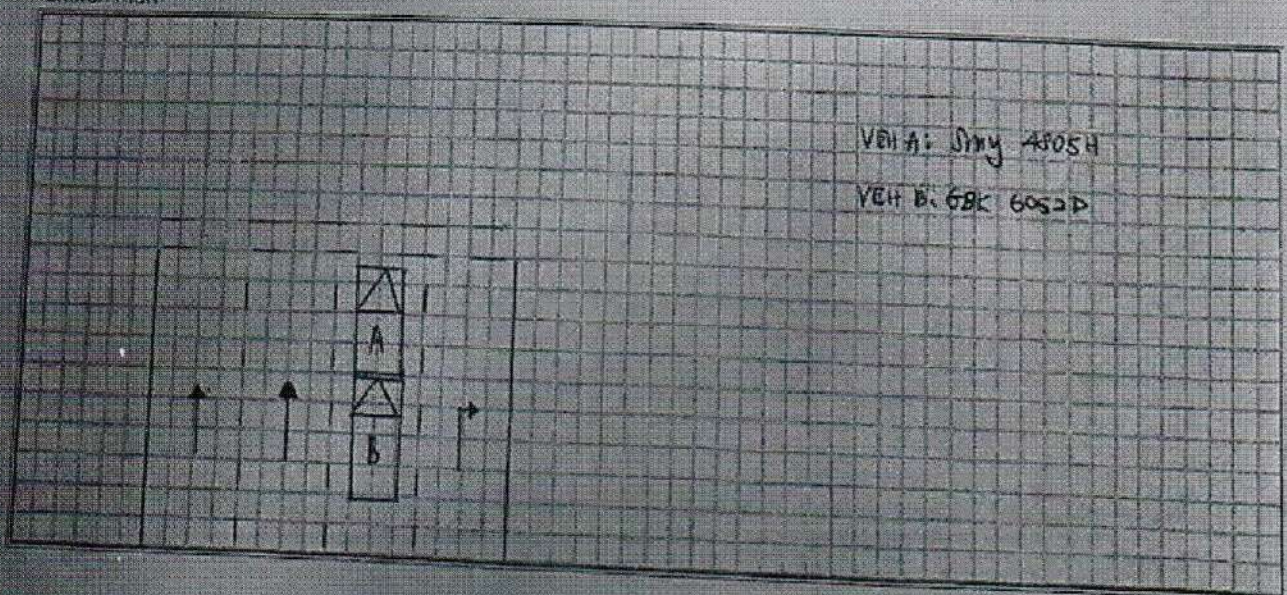 VEH A: Smy 4805H
VEH B: GBK 6052D
A
B